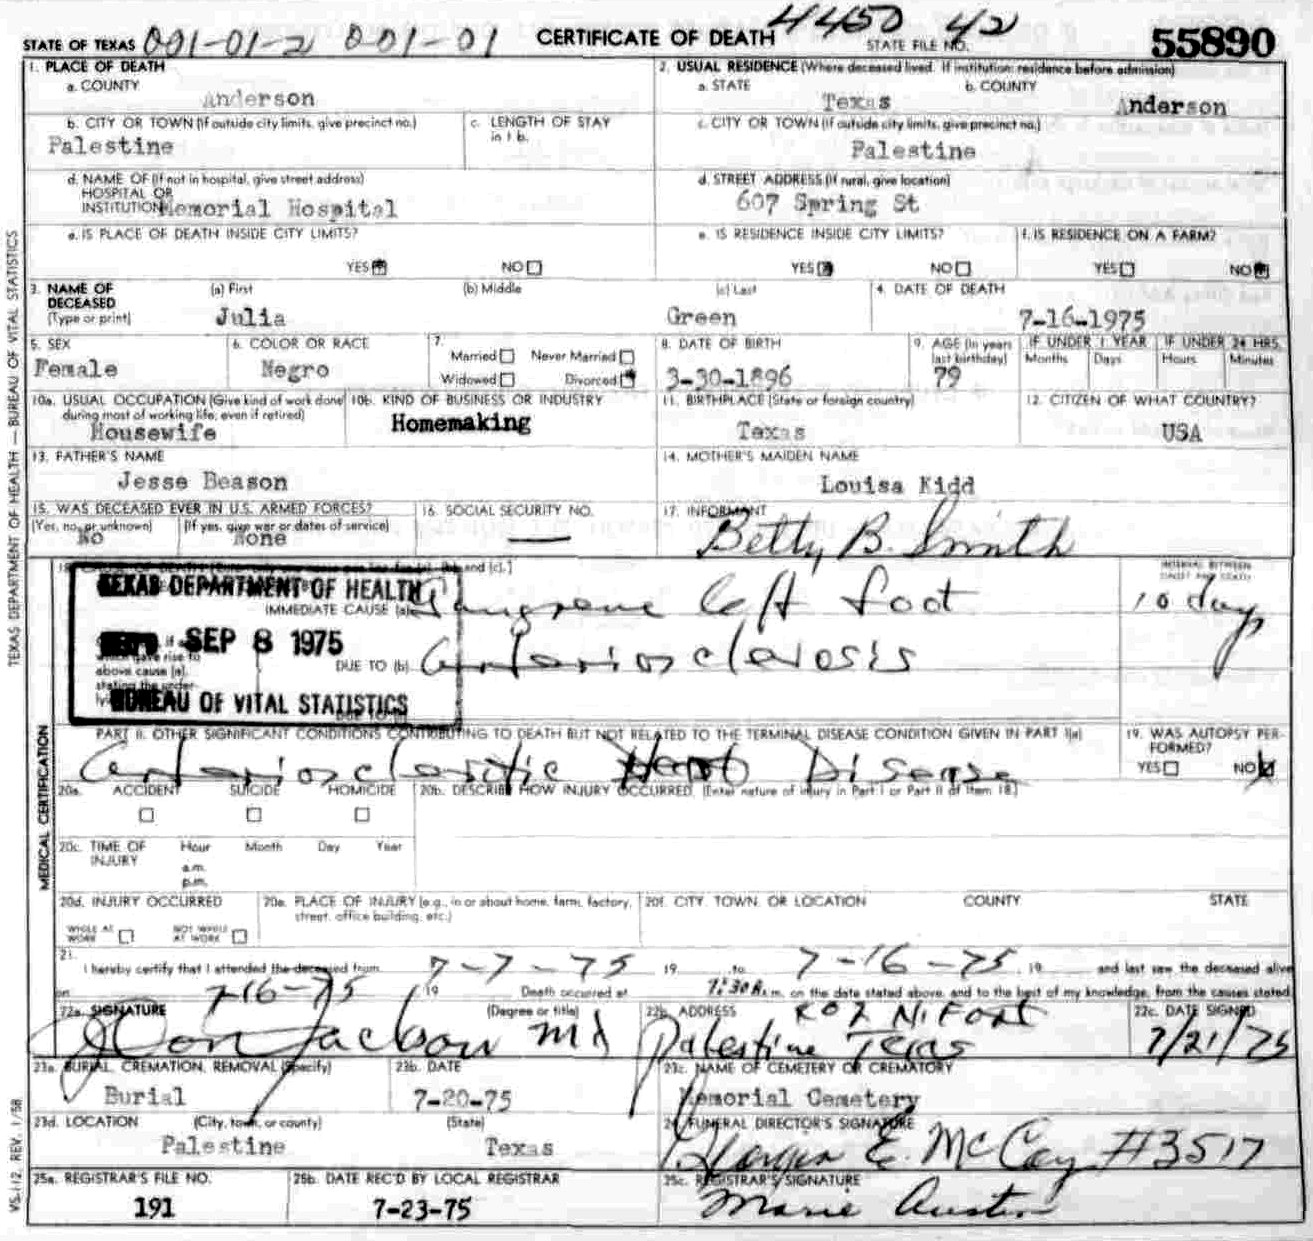 STATE OF TEXAS 001-01-2 001-01 CERTIFICATE OF DEATH 4450 42 STATE FILE NO. 55890
1. PLACE OF DEATH
a. COUNTY
Anderson
2. USUAL RESIDENCE (Where deceased lived. If institution: residence before admission)
a. STATE
Texas
b. COUNTY
Anderson
b. CITY OR TOWN (If outside city limits, give precinct no.)
Palestine
c. LENGTH OF STAY
in 1 b.
c. CITY OR TOWN (If outside city limits, give precinct no.)
Palestine
d. NAME OF (If not in hospital, give street address)
HOSPITAL OR
INSTITUTION Memorial Hospital
d. STREET ADDRESS (If rural, give location)
607 Spring St
e. IS PLACE OF DEATH INSIDE CITY LIMITS?
YES NO
e. IS RESIDENCE INSIDE CITY LIMITS?
YES NO
f. IS RESIDENCE ON A FARM?
YES NO
3. NAME OF
DECEASED
(Type or print)
(a) First
Julia
(b) Middle
(c) Last
Green
4. DATE OF DEATH
7-16-1975
5. SEX
Female
6. COLOR OR RACE
Negro
7.
Married Never Married
Widowed Divorced
8. DATE OF BIRTH
3-30-1896
9. AGE (In years
last birthday)
79
IF UNDER 1 YEAR
Months Days
IF UNDER 24 HRS.
Hours Minutes
10a. USUAL OCCUPATION (Give kind of work done
during most of working life, even if retired)
Housewife
10b. KIND OF BUSINESS OR INDUSTRY
Homemaking
11. BIRTHPLACE (State or foreign country)
Texas
12. CITIZEN OF WHAT COUNTRY?
USA
13. FATHER'S NAME
Jesse Beason
14. MOTHER'S MAIDEN NAME
Louisa Kidd
15. WAS DECEASED EVER IN U.S. ARMED FORCES?
(Yes, no, or unknown)
No
(If yes, give war or dates of service)
None
16. SOCIAL SECURITY NO.
—
17. INFORMANT
Betty B. Smith
and (c).]
TEXAS DEPARTMENT OF HEALTH
SEP 8 1975
BUREAU OF VITAL STATISTICS
IMMEDIATE CAUSE (a) Gangrene left foot
INTERVAL BETWEEN
ONSET AND DEATH
10 days
above cause (a),
stating the under-
DUE TO (b) arteriosclerosis
PART II. OTHER SIGNIFICANT CONDITIONS CONTRIBUTING TO DEATH BUT NOT RELATED TO THE TERMINAL DISEASE CONDITION GIVEN IN PART I(a)
arteriosclerotic Heart Disease
19. WAS AUTOPSY PER-
FORMED?
YES NO
20a. ACCIDENT SUICIDE HOMICIDE
20b. DESCRIBE HOW INJURY OCCURRED. (Enter nature of injury in Part I or Part II of Item 18.)
20c. TIME OF
INJURY
Hour Month Day Year
a.m.
p.m.
20d. INJURY OCCURRED
WHILE AT
WORK
NOT WHILE
AT WORK
20e. PLACE OF INJURY (e.g., in or about home, farm, factory,
street, office building, etc.)
20f. CITY, TOWN, OR LOCATION COUNTY STATE
21.
I hereby certify that I attended the deceased from 7-7-75 19 to 7-16-75, 19 and last saw the deceased alive
on 7-16-75 19 Death occurred at 7:30 A.m. on the date stated above, and to the best of my knowledge, from the causes stated.
22a. SIGNATURE (Degree or title)
Don Jackson MD
22b. ADDRESS
807 N. Fort
Palestine Texas
22c. DATE SIGNED
7/21/75
23a. BURIAL, CREMATION, REMOVAL (Specify)
Burial
23b. DATE
7-20-75
23c. NAME OF CEMETERY OR CREMATORY
Memorial Cemetery
23d. LOCATION (City, town, or county) (State)
Palestine Texas
24. FUNERAL DIRECTOR'S SIGNATURE
E. McCoy #3517
25a. REGISTRAR'S FILE NO.
191
25b. DATE REC'D BY LOCAL REGISTRAR
7-23-75
25c. REGISTRAR'S SIGNATURE
Marie Austin
TEXAS DEPARTMENT OF HEALTH — BUREAU OF VITAL STATISTICS
MEDICAL CERTIFICATION
VS-112, REV. 1/58